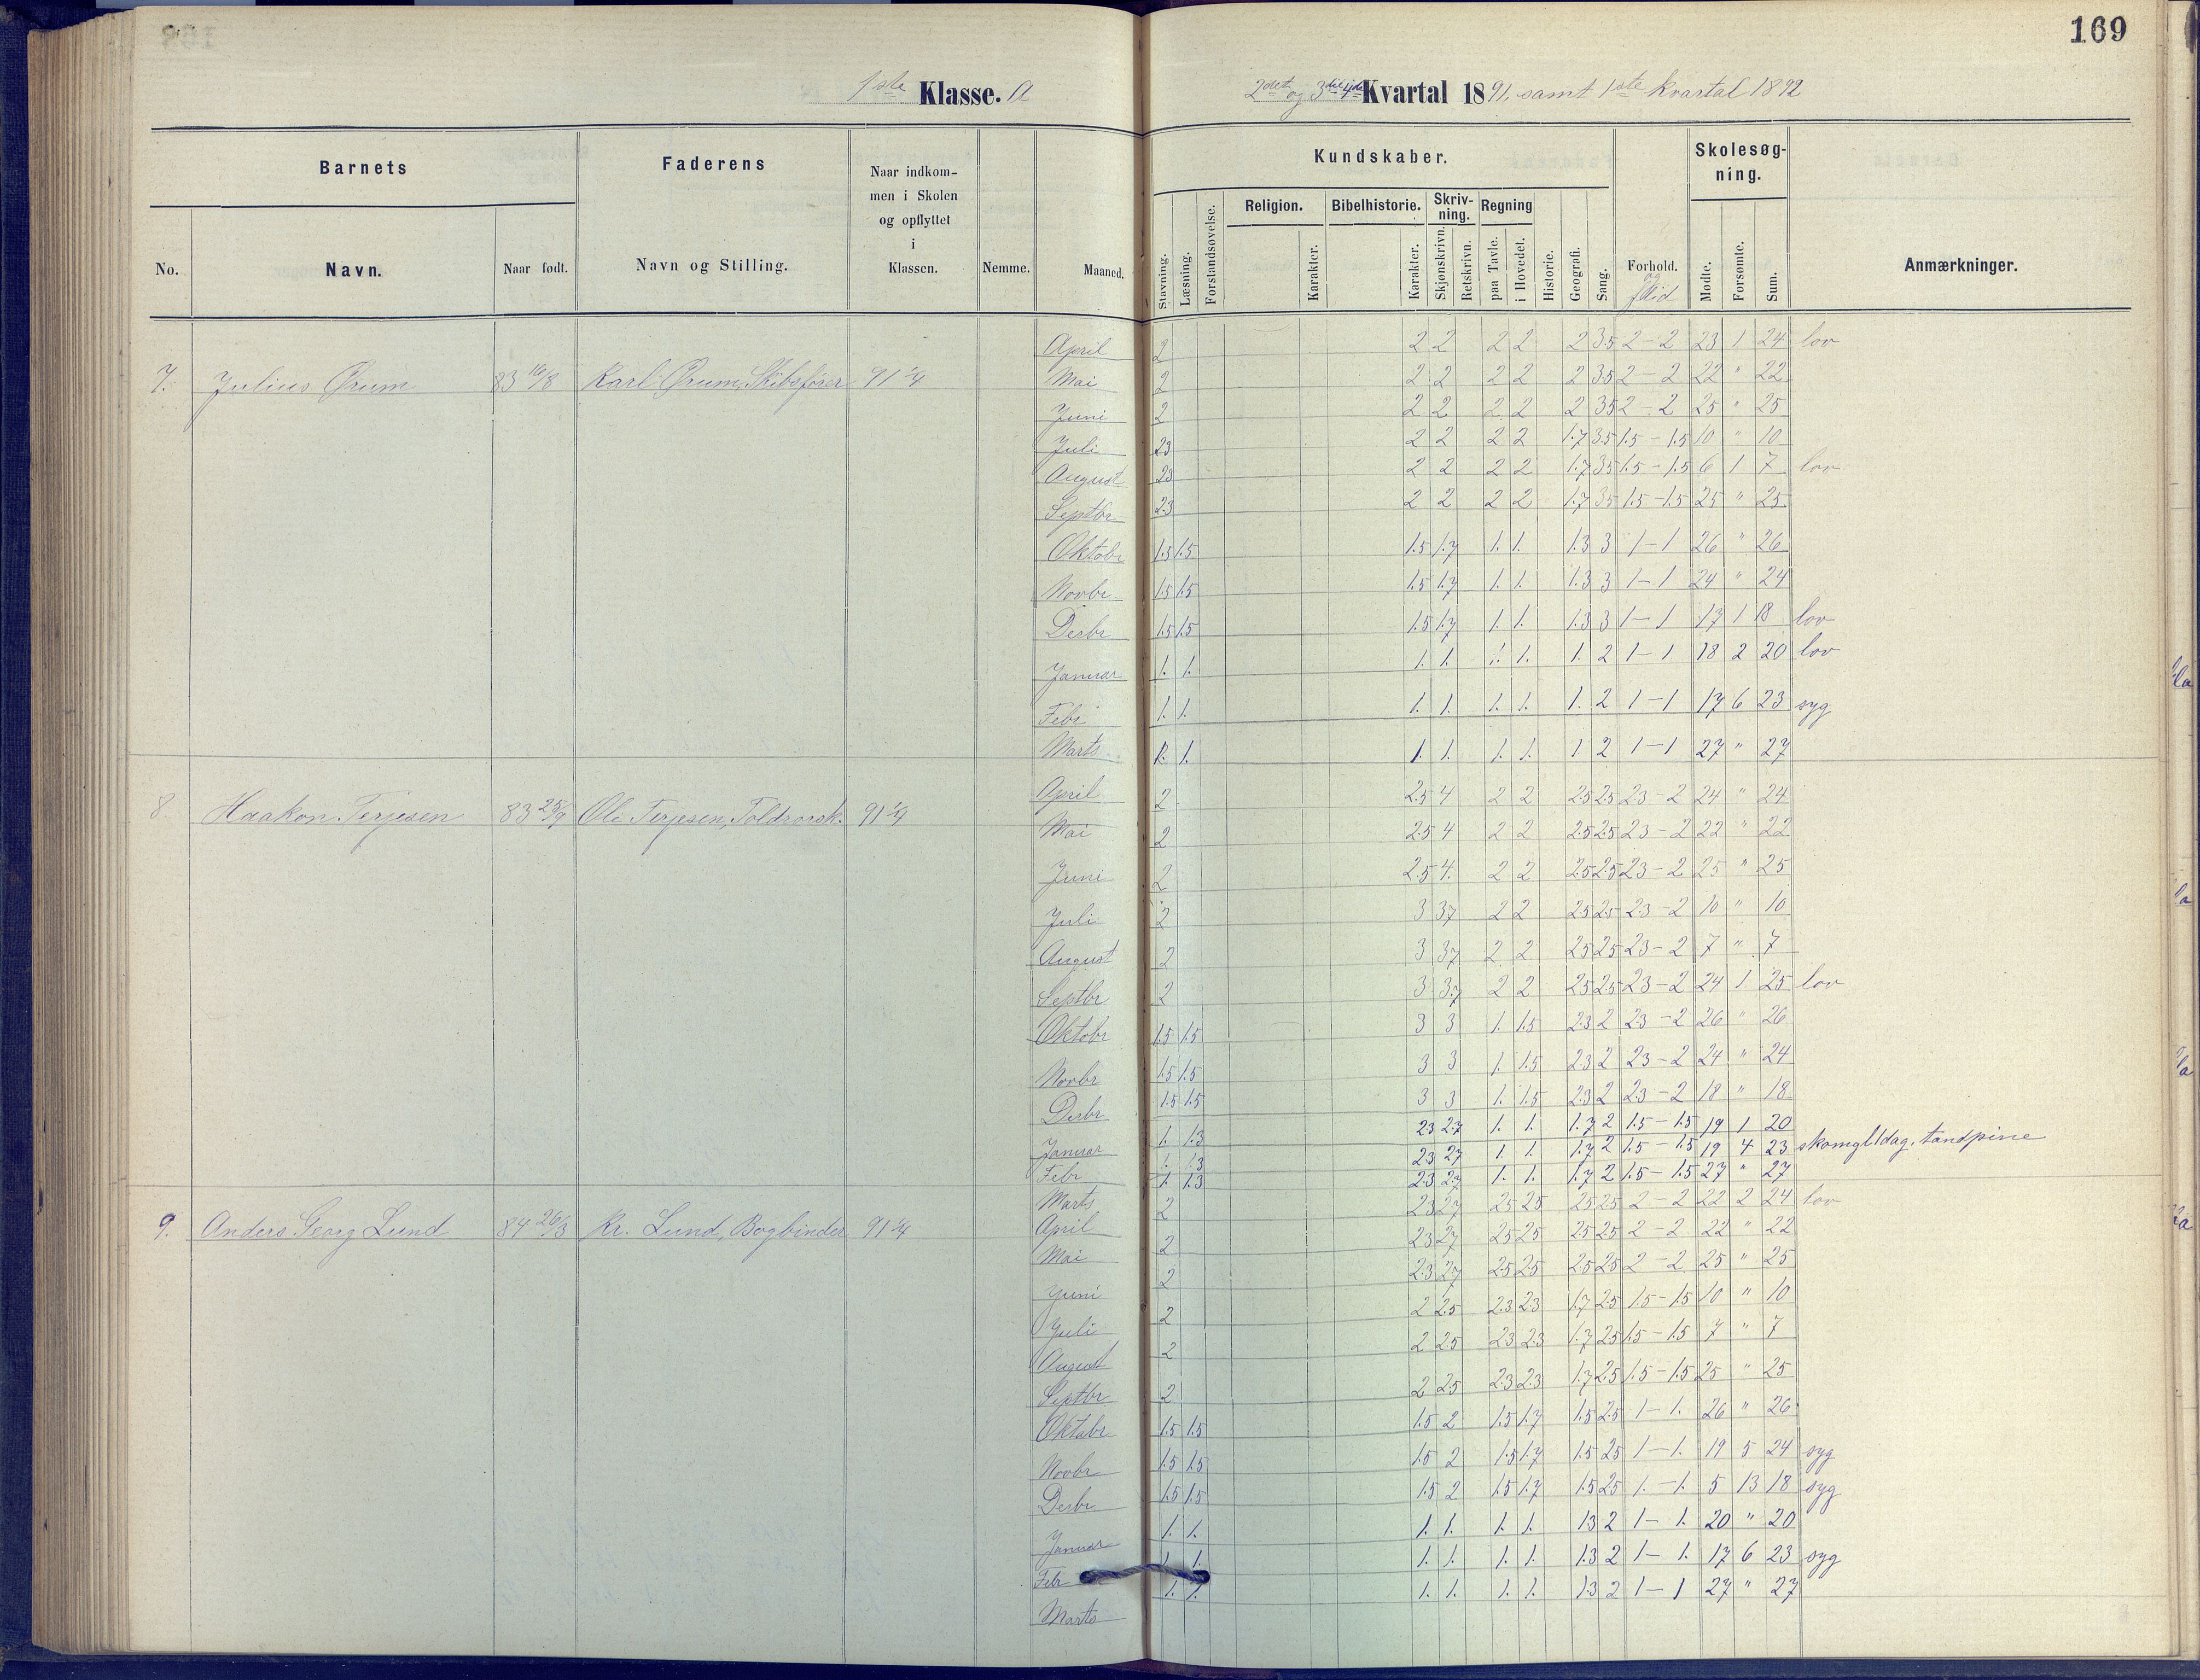 169
1ste Klasse. A
2det og 3die 4de Kvartal 1891, samt 1ste kvartal 1892
Barnets Faderens Naar indkommen i Skolen og opflyttet i Klassen. Nemme. Maaned. Kundskaber. Forhold. og flid Skolesøgning. Anmærkninger.
No. Navn. Naar født. Navn og Stilling.
Stavning. Læsning. Forstandsøvelse. Religion. Karakter. Bibelhistorie. Karakter. Skrivning. Skjønskrivn. Retskrivn. Regning paa Tavle. i Hovedet. Historie. Geografi. Sang. Mødte. Forsømte. Sum.
7. Julius Ørum 83 16/8 Karl Ørum, Skibsfører 91 1/4
April 2 2 2 2 2 2 35 2-2 23 1 24 lov
Mai 2 2 2 2 2 2 35 2-2 22 " 22
Juni 2 2 2 2 2 2 35 2-2 25 " 25
Juli 23 2 2 2 2 1.7 35 1.5-1.5 10 " 10
August 23 2 2 2 2 1.7 35 1.5-1.5 6 1 7 lov
Septbr 23 2 2 2 2 1.7 35 1.5-1.5 25 " 25
Oktobr 1.5 1.5 1.5 1.7 1. 1. 1.3 3 1-1 26 " 26
Novbr 1.5 1.5 1.5 1.7 1. 1. 1.3 3 1-1 24 " 24
Desbr 1.5 1.5 1.5 1.7 1. 1. 1.3 3 1-1 17 1 18 lov
Januar 1. 1. 1. 1. 1. 1. 1. 2 1-1 18 2 20 lov
Febr 1. 1. 1. 1. 1. 1. 1. 2 1-1 17 6 23 syg
Marts 1. 1. 1. 1. 1. 1. 1 2 1-1 27 " 27
8. Haakon Terjesen 83 25/9 Ole Terjesen, Toldrorsk. 91 1/4
April 2 2.5 4 2 2 25 25 23-2 24 " 24
Mai 2 2.5 4 2 2 25 25 23-2 22 " 22
Juni 2 2.5 4. 2 2 25 25 23-2 25 " 25
Juli 2 3 37 2 2 25 25 23-2 10 " 10
August 2 3 37 2 2 25 25 23-2 7 " 7
Septbr 2 3 37 2 2 25 25 23-2 24 1 25 lov
Oktobr 1.5 1.5 3 3 1. 1.5 23 2 23-2 26 " 26
Novbr 1.5 1.5 3 3 1. 1.5 23 2 23-2 24 " 24
Desbr 1.5 1.5 3 3 1. 1.5 23 2 23-2 18 " 18
Januar 1. 1.3 23 27 1. 1. 1.7 2 1.5-1.5 19 1 20
Febr 1. 1.3 23 27 1 1. 1.7 2 1.5-1.5 19 4 23 skomgl 1 dag, tandpine
Marts 1. 1.3 23 27 1. 1. 1.7 2 1.5-1.5 27 " 27
9. Anders Georg Lund 84 26/3 Kr. Lund, Bogbinder 91 1/4
April 2 23 27 25 25 25 25 2-2 22 2 24 lov
Mai 2 23 27 25 25 25 25 2-2 22 " 22
Juni 2 23 27 25 25 25 25 2-2 25 " 25
Juli 2 2 25 23 23 1.7 25 1.5-1.5 10 " 10
August 2 2 25 23 23 1.7 25 1.5-1.5 7 " 7
Septbr 2 2 25 23 23 1.7 25 1.5-1.5 25 " 25
Oktobr 1.5 1.5 1.5 2 1.5 1.7 1.5 25 1-1. 26 " 26
Novbr 1.5 1.5 1.5 2 1.5 1.7 1.5 25 1-1. 19 5 24 syg
Desbr 1.5 1.5 1.5 2 1.5 1.7 1.5 25 1.-1. 5 13 18 syg
Januar 1. 1. 1. 1. 1. 1. 13 2 1-1. 20 " 20
Febr 1. 1. 1. 1. 1. 1. 13 2 1-1. 17 6 23 syg
Marts 1. 1. 1. 1. 1. 1. 13 2 1-1 27 " 27